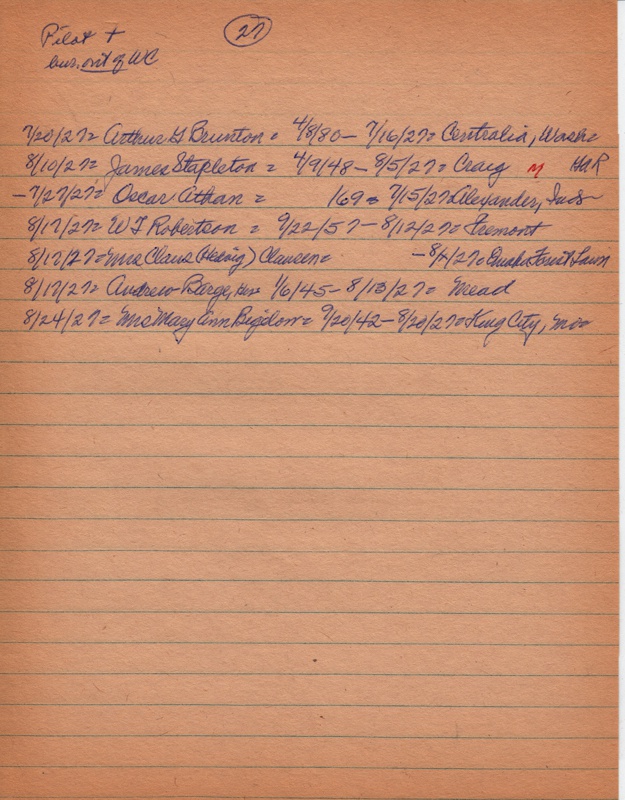 Pilot + 27
bur. out of WC
7/20/27= Arthur G Brunton = 4/8/80 – 7/16/27= Centralia, Wash=
8/10/27= James Stapleton = 4/9/48 – 8/5/27= Craig M H&R
– 7/27/27= Oscar Athan = 169 = 7/15/27 Alexander, Ind=
8/17/27= W J Robertson = 9/22/57 – 8/12/27= Fremont
8/17/27= Mrs Claus (Hedvig) Clausen= – 8/ /27= Omaha Forest Lawn
8/17/27= Andrew Barge, 1/6/45 – 8/13/27= Mead
8/24/27= Mrs Mary Ann Bigelow= 9/20/42 – 8/20/27= King City, Mo=